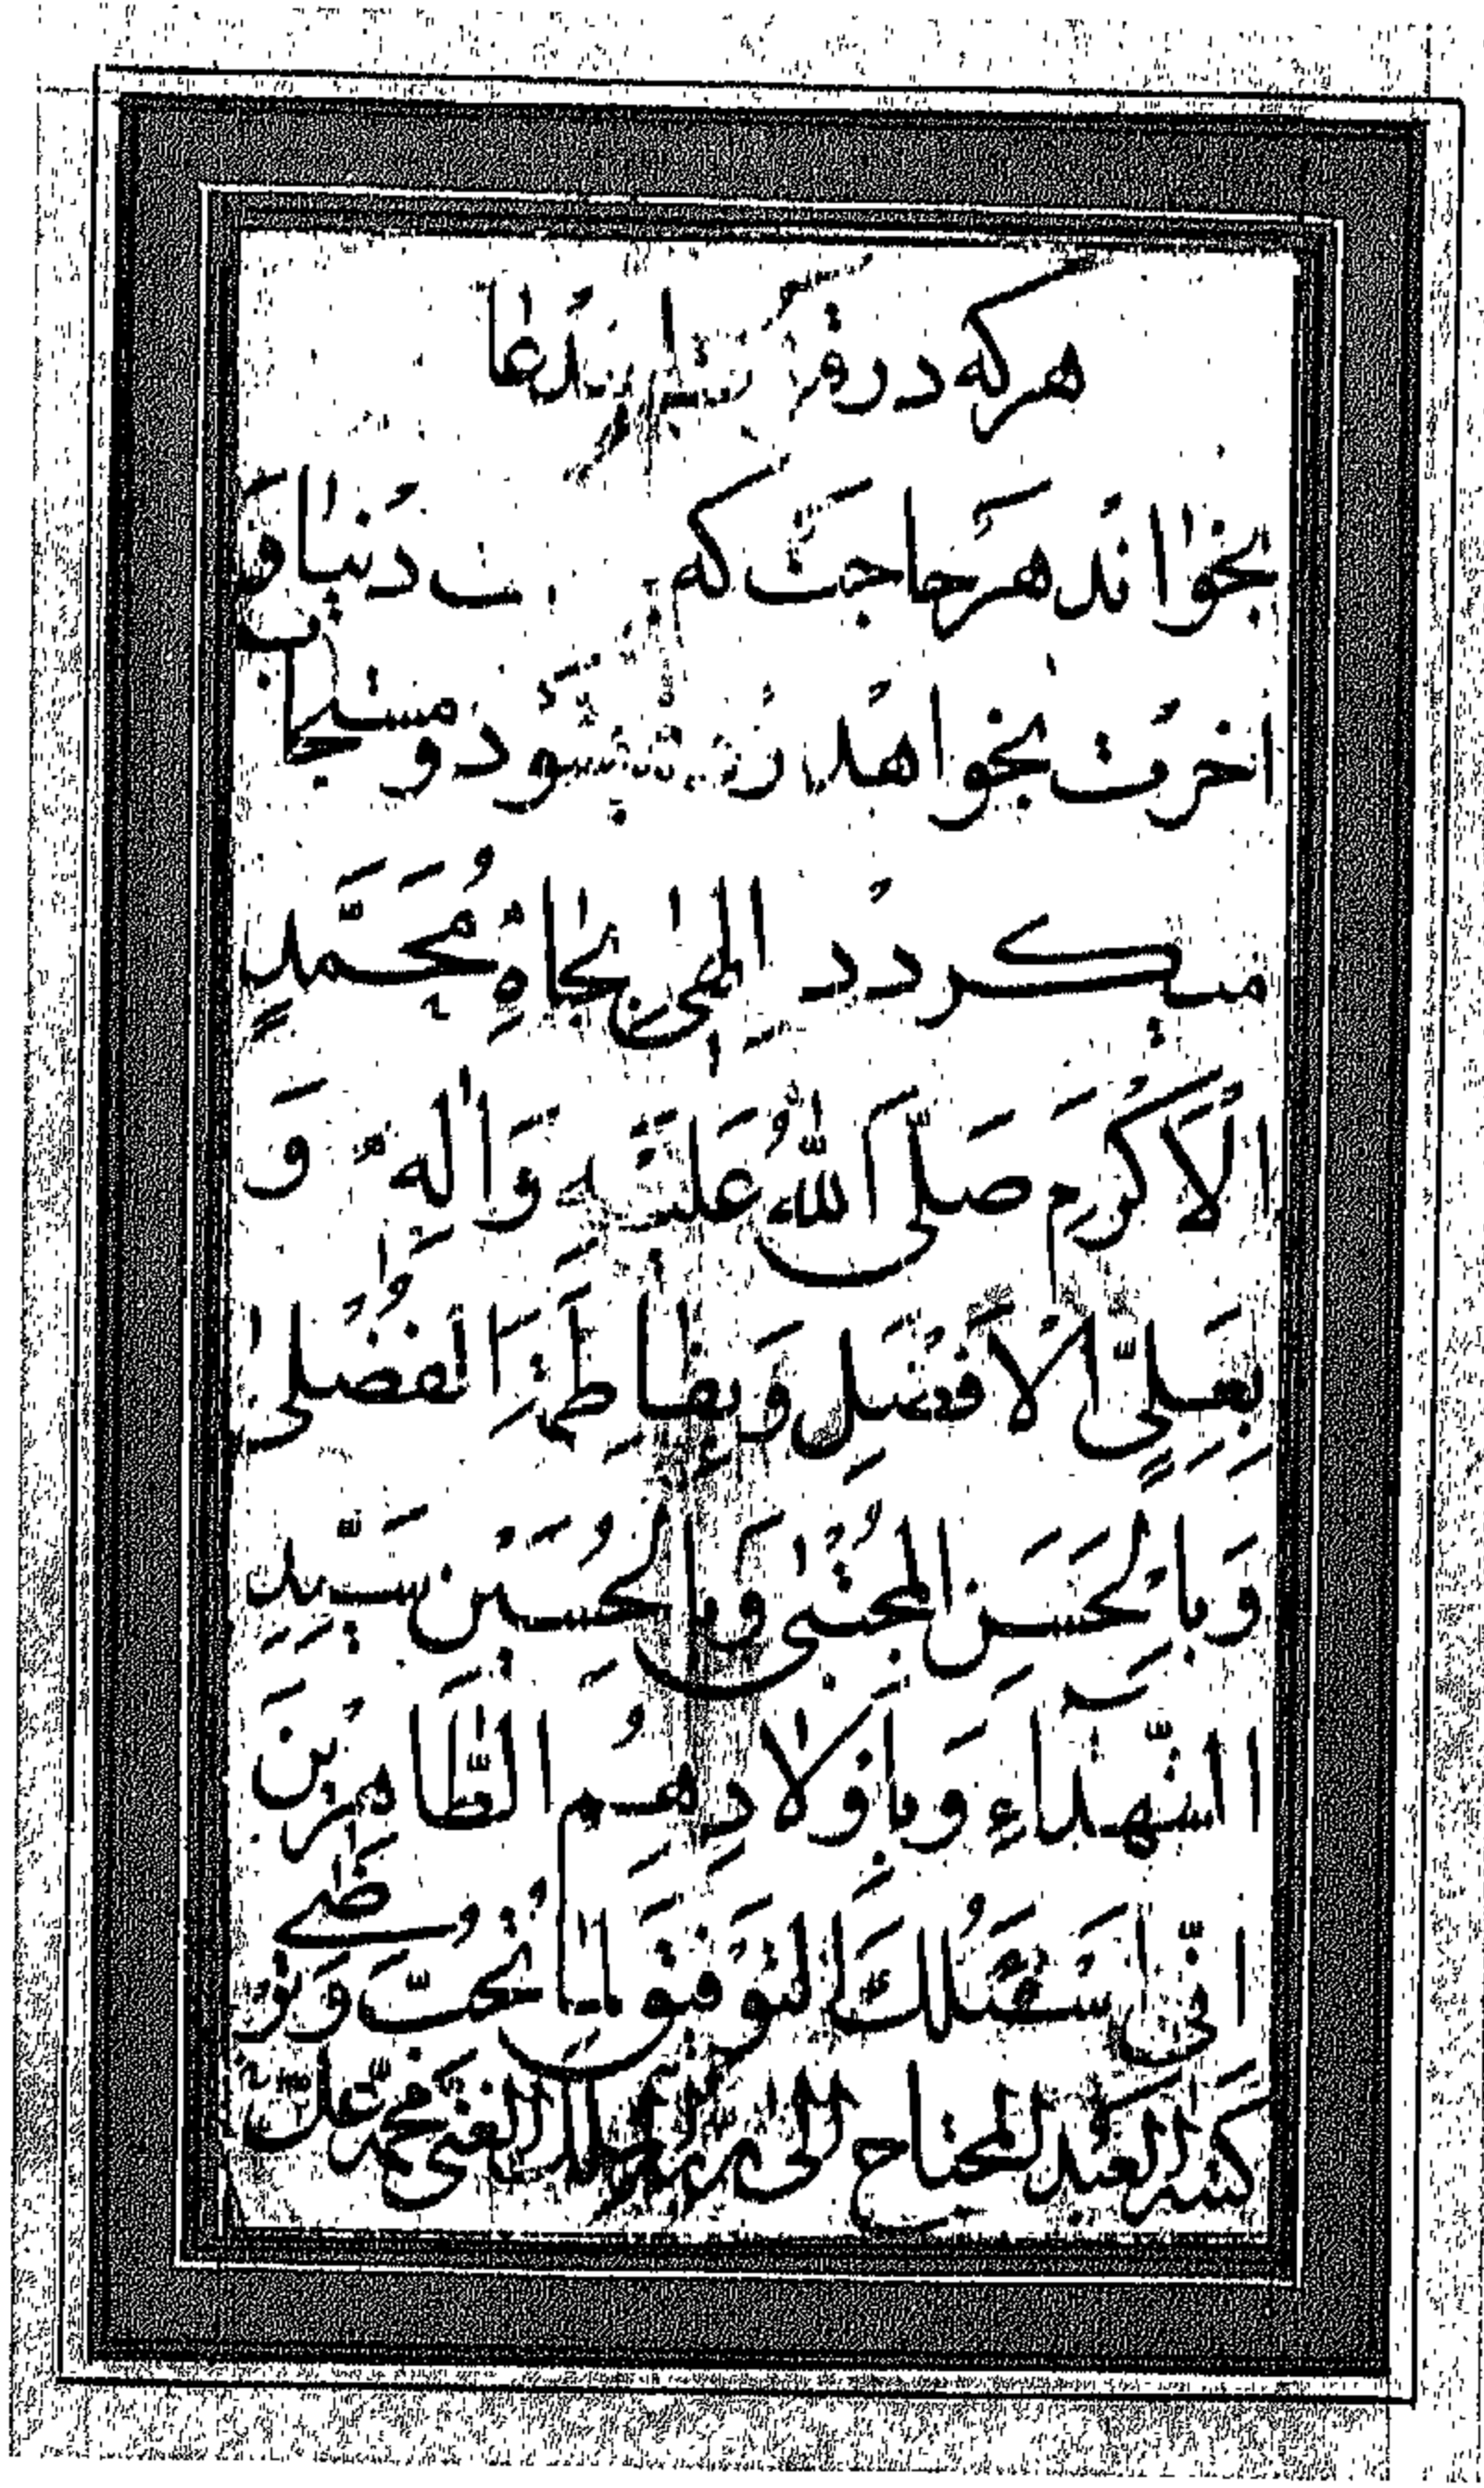 هرکه در دعا
بخواند هر حاجت که دنیا و
اخرت بخواهد بشود و مستجاب
میکردد اِلهی بِجاهِ مُحَمَّدٍ
الْاَکْرَمِ صَلَّی اللهُ عَلَیْهِ وَالِهِ وَ
بِعَلِیٍّ الْاَفْضَلِ وَبِفاطِمَةَ الْفُضْلی
وَبِالْحَسَنِ الْمُجْتَبی وَبِالْحُسَیْنِ سَیِّدِ
الشُّهَدآءِ وَبِاَوْلادِهِمُ الطَّاهِرینَ
اِنّی اَسْئَلُكَ التَّوْفیقَ لِما تُحِبُّ وَتَرْضی
کتبه العبد المحتاج الی الملك الغنی محمد علی